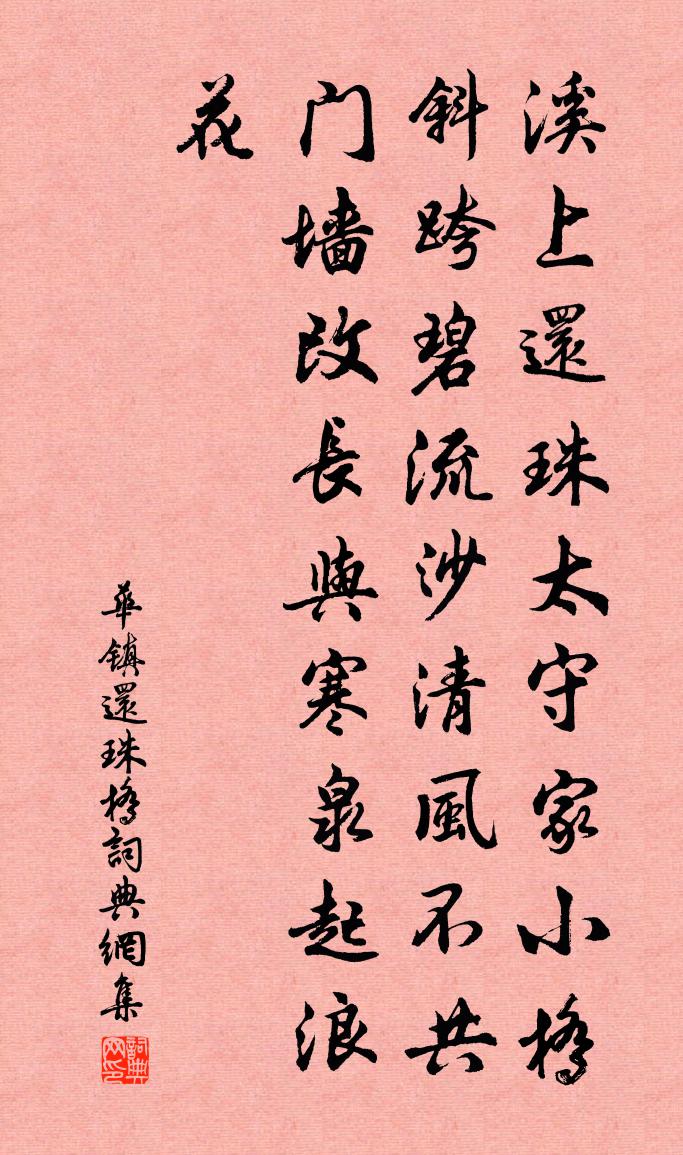 溪上還珠太守家小橋
斜跨碧流沙清風不共
门墙改長與寒泉起浪
花
華鎮還珠橋詞典網集
詞典网印